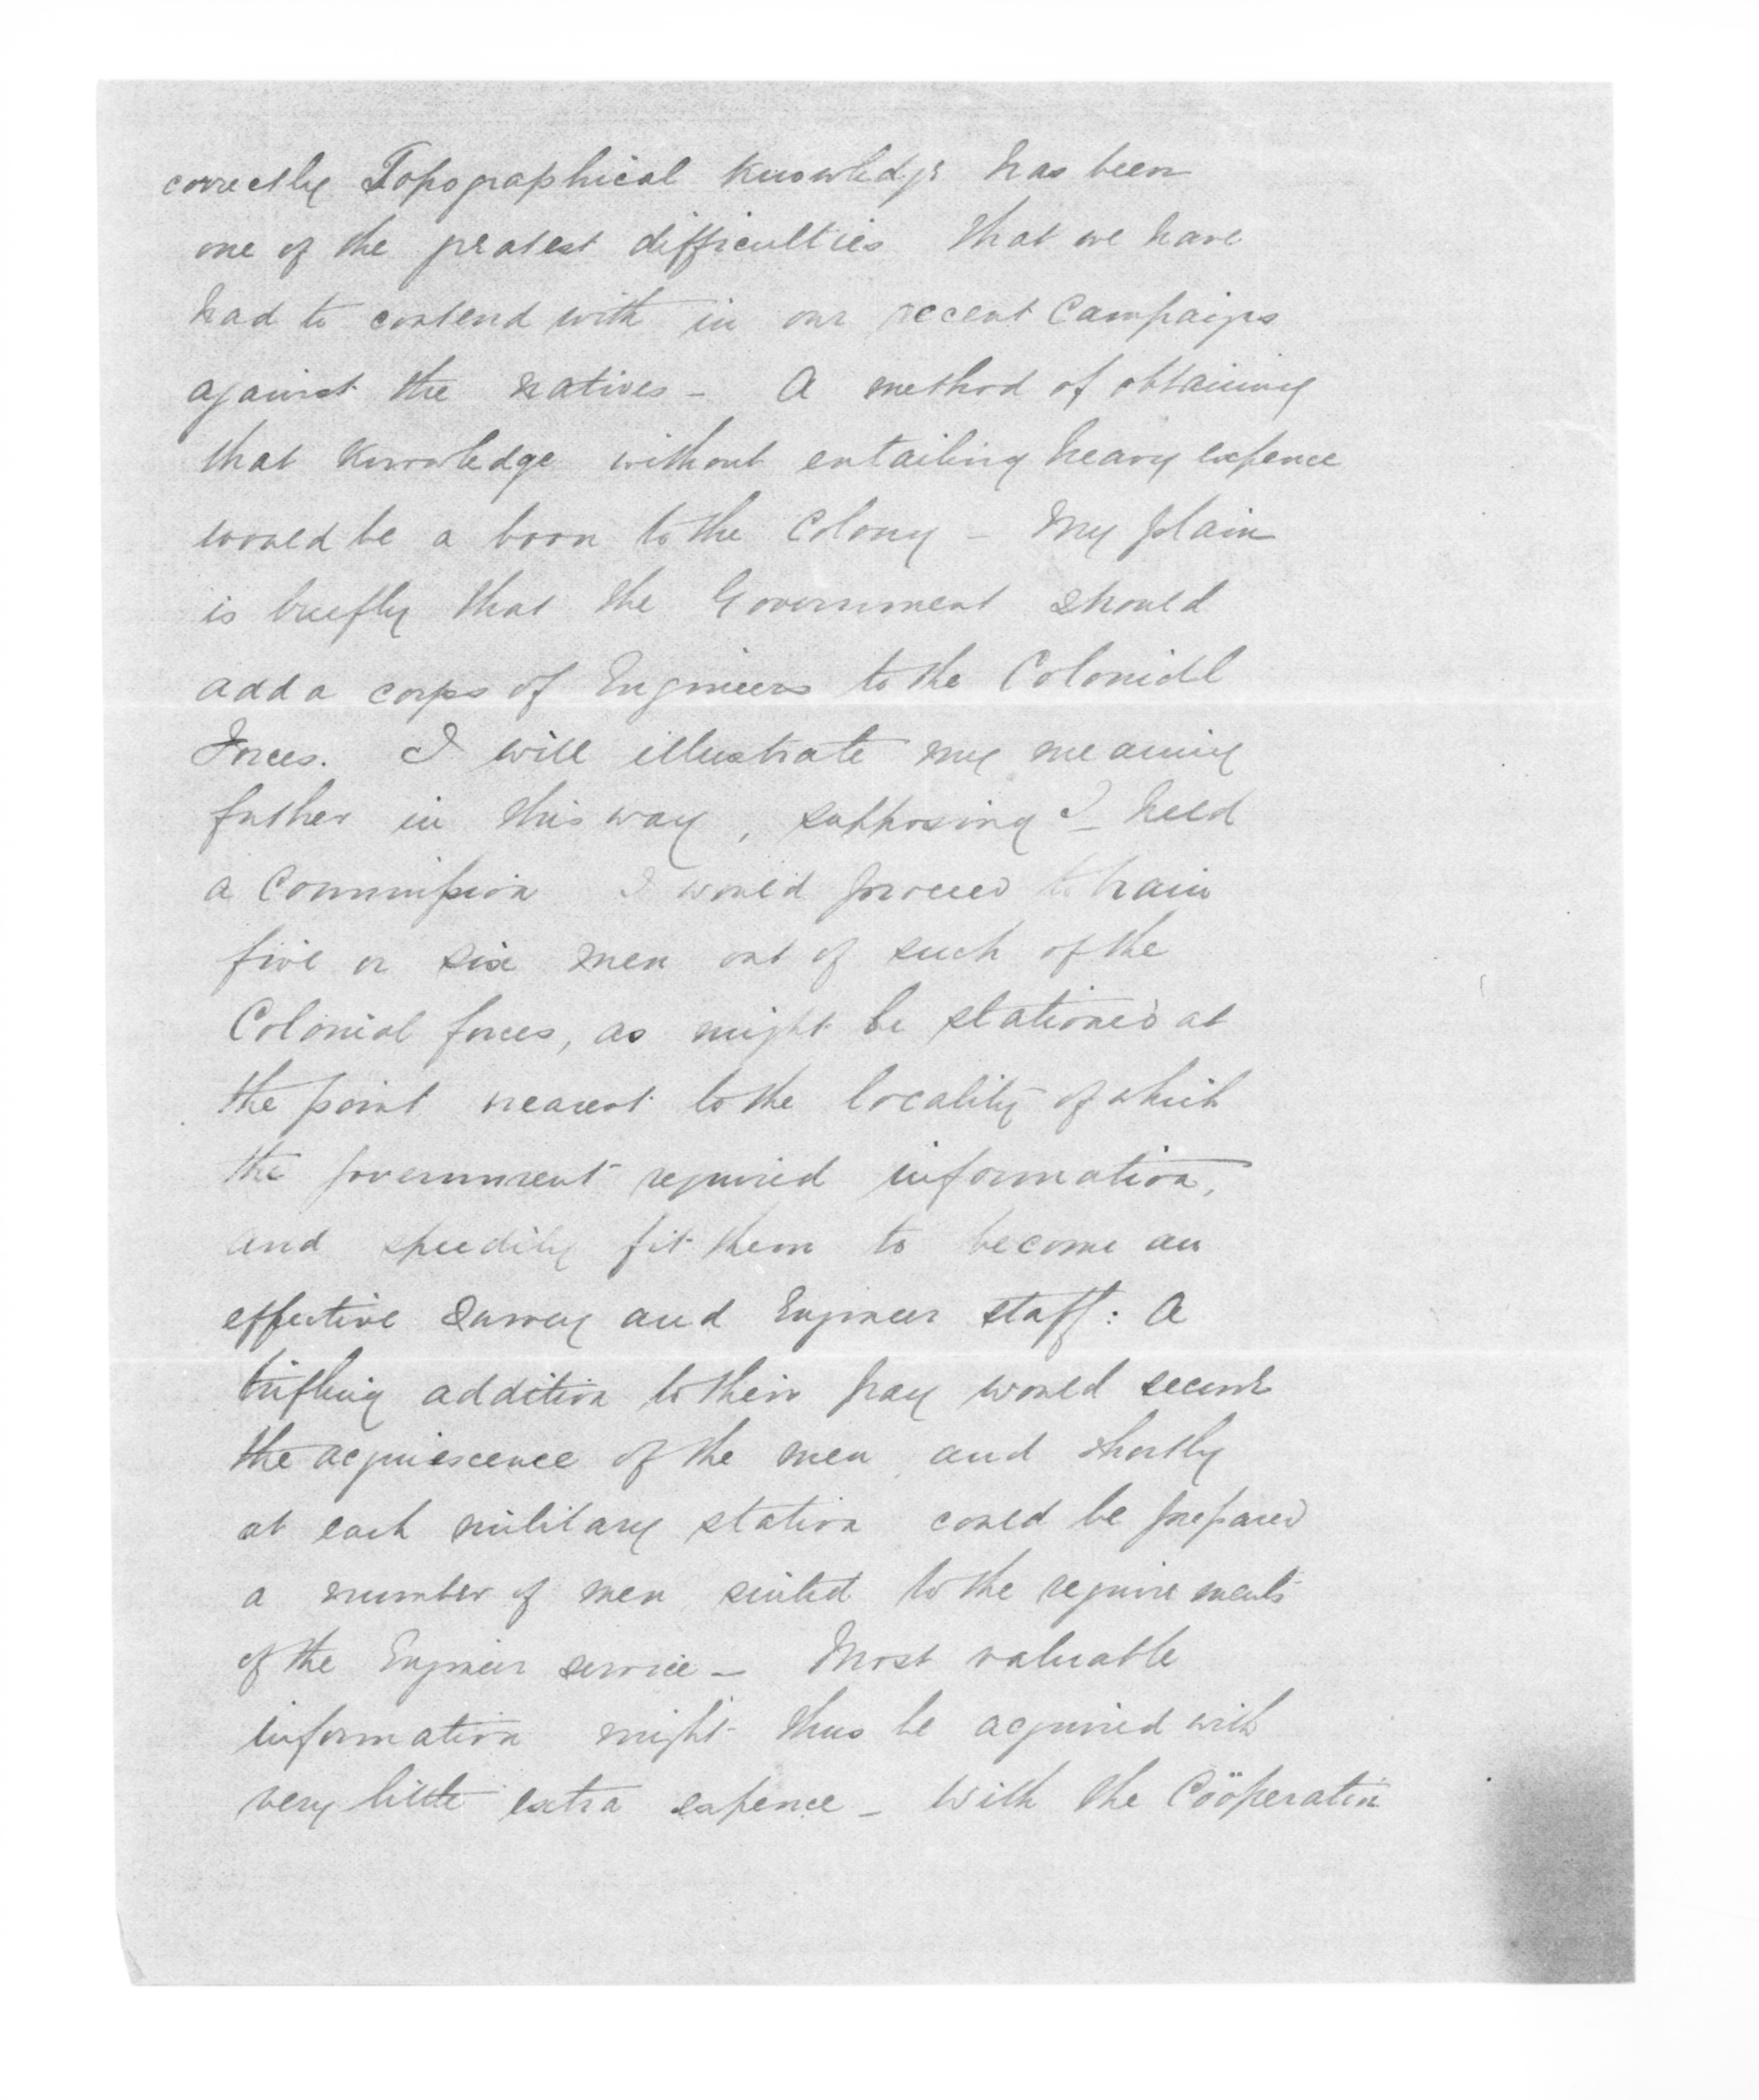 correctly Topographical Knowledge has been
one of the greatest difficulties that we have
had to contend with in our recent Campaigns
against the natives - A method of obtaining
that Knowledge without entailing heavy expence
would be a boon to the Colony - My plain
is briefly that the Government should
add a corps of Engineers to the Colonial
Forces. I will illustrate my meaning
futher in this way, supposing I held
a Commission I would proceed to train
five or six men out of such of the
Colonial forces, as might be stationed at
the point nearest to the locality of which
the government required information,
and speedily fit them to become an
effective Survey and Engineer staff: A
trifling addition to their pay would secure
the acquiescence of the men and shortly
at each military station could be prepared
a number of men suited to the requirements
of the Engineer service - Most valuable
information might thus be acquired with
very little extra expence - With the Coöperation